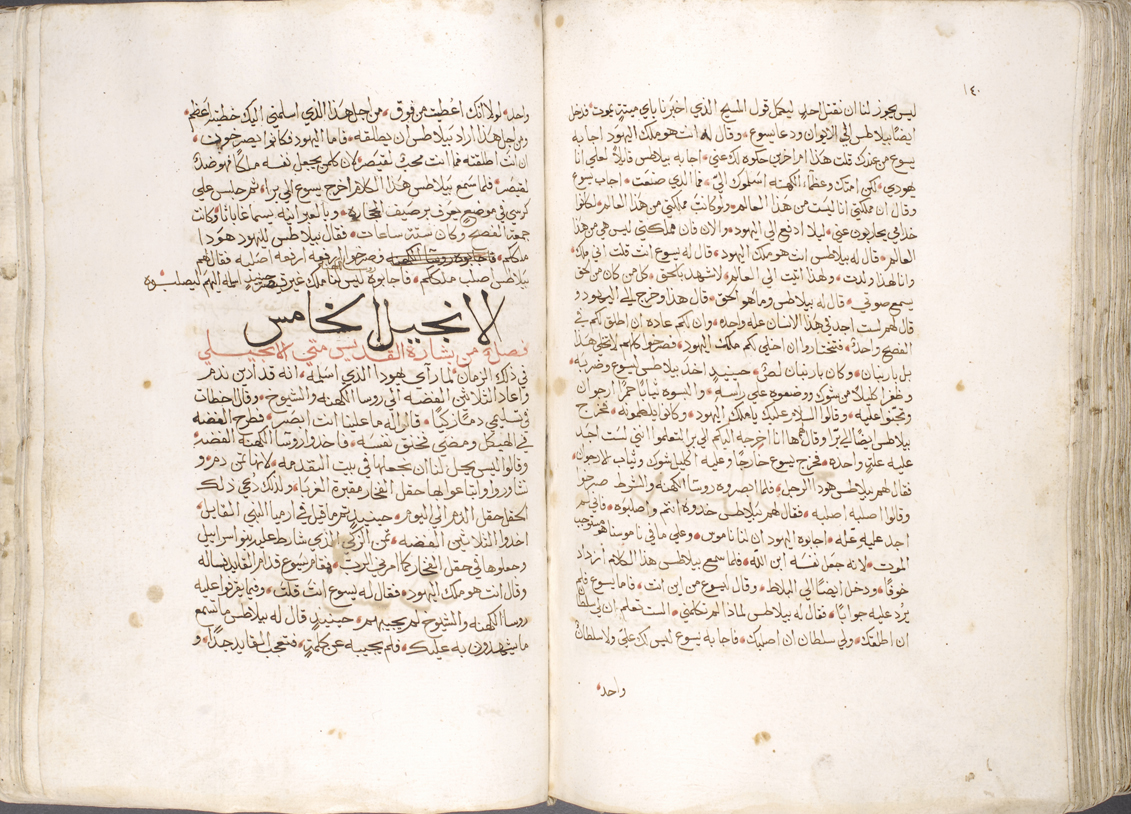 ١٤٠
ليس يجوز لنا ان نقتل احد ليكمل قول المسيح الذي اخبرنا باي ميتة يموت فدخل
ايضا بيلاطس الي الايوان ودعا يسوع وقال له انت هو ملك اليهود اجابه
يسوع من عندك قلت هذا ام اخرين حكوه لك عني اجابه بيلاطس قايلا لعلي انا
يهودي لكن امتك وعظماء الكهنه اسلموك الي فما الذي صنعت اجاب يسوع
وقال ان مملكتي انا ليست من هذا العالم ولو كانت مملكتي من هذا العالم لكانوا
خدامي يحاربون عني ليلا ادفع الي اليهود والان فان مملكتي ليس هي من هذا
العالم قال له بيلاطس انت هو ملك اليهود قال له يسوع انت قلت اني ملك
وانا لهذا ولدت ولهذا اتيت الي العالم لاشهد بالحق كلمن كان من الحق
يسمع صوتي قال له بيلاطس وما هو الحق قال هذا وخرج الي اليهود و
قال لهم لست اجد في هذا الانسان عله واحده وان لكم عاده ان اطلق لكم في
الفصح واحد فتختاروا ان اخلي لكم ملك اليهود فصرخوا كلهم لا تخلي هذا
بل باربنان وكان باربنان لص حينيد اخد بيلاطس يسوع وضربه
وظفرا كليلا من شوك ووضعوه علي راسه والبسوه ثيابا حمرا ارجوان
وقالوا السلام عليك يا ملك اليهود وكانوا يلطمونه فخرج
بيلاطس ايضا الي برا وقال لهم ها انا اخرجه اليكم الي برا لتعلموا انني لست اجد
عليه علة واحده فخرج يسوع خارجا وعليه اكليل شوك وثياب الارجوان
فقال لهم بيلاطس هودا الرجل فلما ابصروه روسا الكهنة والشرط صرخو
وقالوا اصلبه اصلبه فقال لهم بيلاطس خدوه انتم واصلبوه فاني لم
اجد عليه علة اجابوه اليهود ان لنا ناموس وعلي ما في ناموسنا هو مستوجب
الموت لانه جعل نفسه ابن الله فلما سمع بيلاطس هذا الكلام ازداد
خوفا ودخل ايضا الي البلاط وقال ليسوع من اين انت فاما يسوع فلم
يرد عليه جوابا فقال له بيلاطس لماذا لم تكلمني الست تعلم ان لي سلطان
ان اطلقك ولي سلطان ان اصلبك فاجابه يسوع ليس لك علي ولا سلطان
واحد
واحد لولا انك اعطيت من فوق من اجل هذا الذي اسلمني اليك خطيته اعظم
ومن اجل هذا اراد بيلاطس ان يطلقه فاما اليهود فكانوا يصرخون
ان انت اطلقته فما انت محب لقيصر لان كلمن يجعل نفسه ملكا فهو ضد
لقيصر فلما سمع بيلاطس هذا الكلام اخرج يسوع الي برا ثم جلس علي
كرسي في موضع يعرف برصيف الحجاره وبالعبرانيه يسما غاباثا وكانت
جمعة الفصح وكان ستة ساعات فقال بيلاطس لليهود هودا
ملككم فاجابوه روسا الكهنه وصرخوا ارفعه ارفعه اصلبه فقال لهم
بيلاطس اصلب ملككم فاجابوه ليس لنا ملك غير قيصر حينيد اسلمه اليهم ليصلبوه
الانجيل الخامس
فصل من بشارة القديس متي الانجيلي
في ذلك الزمان لما رآي يهودا الذي اسلمه انه قد ادين ندم
واعاد الثلاثين الفضه الي روسا الكهنه والشيوخ وقال اخطات
في تسليمي دما زكيا قالوا له ما علينا انت ابصر فطرح الفضه
في الهيكل ومضي فخنق نفسه فاخدوا روسا الكهنة الفضه
وقالوا ليس يحل لنا ان نجعلها في بيت التقدمه لانها ثمن دم و
تشاوروا وابتاعوا بها حقل الفخار مقبرة الغربا ولذلك دعي ذلك
الحقل حقل الدم الي اليوم حينيد تم ما قيل في ارميا النبي القايل
اخدوا الثلاثين الفضه ثمن الزكي الذي شارط عليه بنو اسراييل
وجعلوها في حقل الفخار كما امرني الرب فقام يسوع قدام القايد يساله
وقال انت هو ملك اليهود فقال له يسوع انت قلت وفيما يقرفوا عليه
روسا الكهنه والشيوخ لم يجيبهم حينيد قال له بيلاطس ما تسمع
ما يشهدون به عليك فلم يجيبه عن كلمة فتعجب القايد جدا و